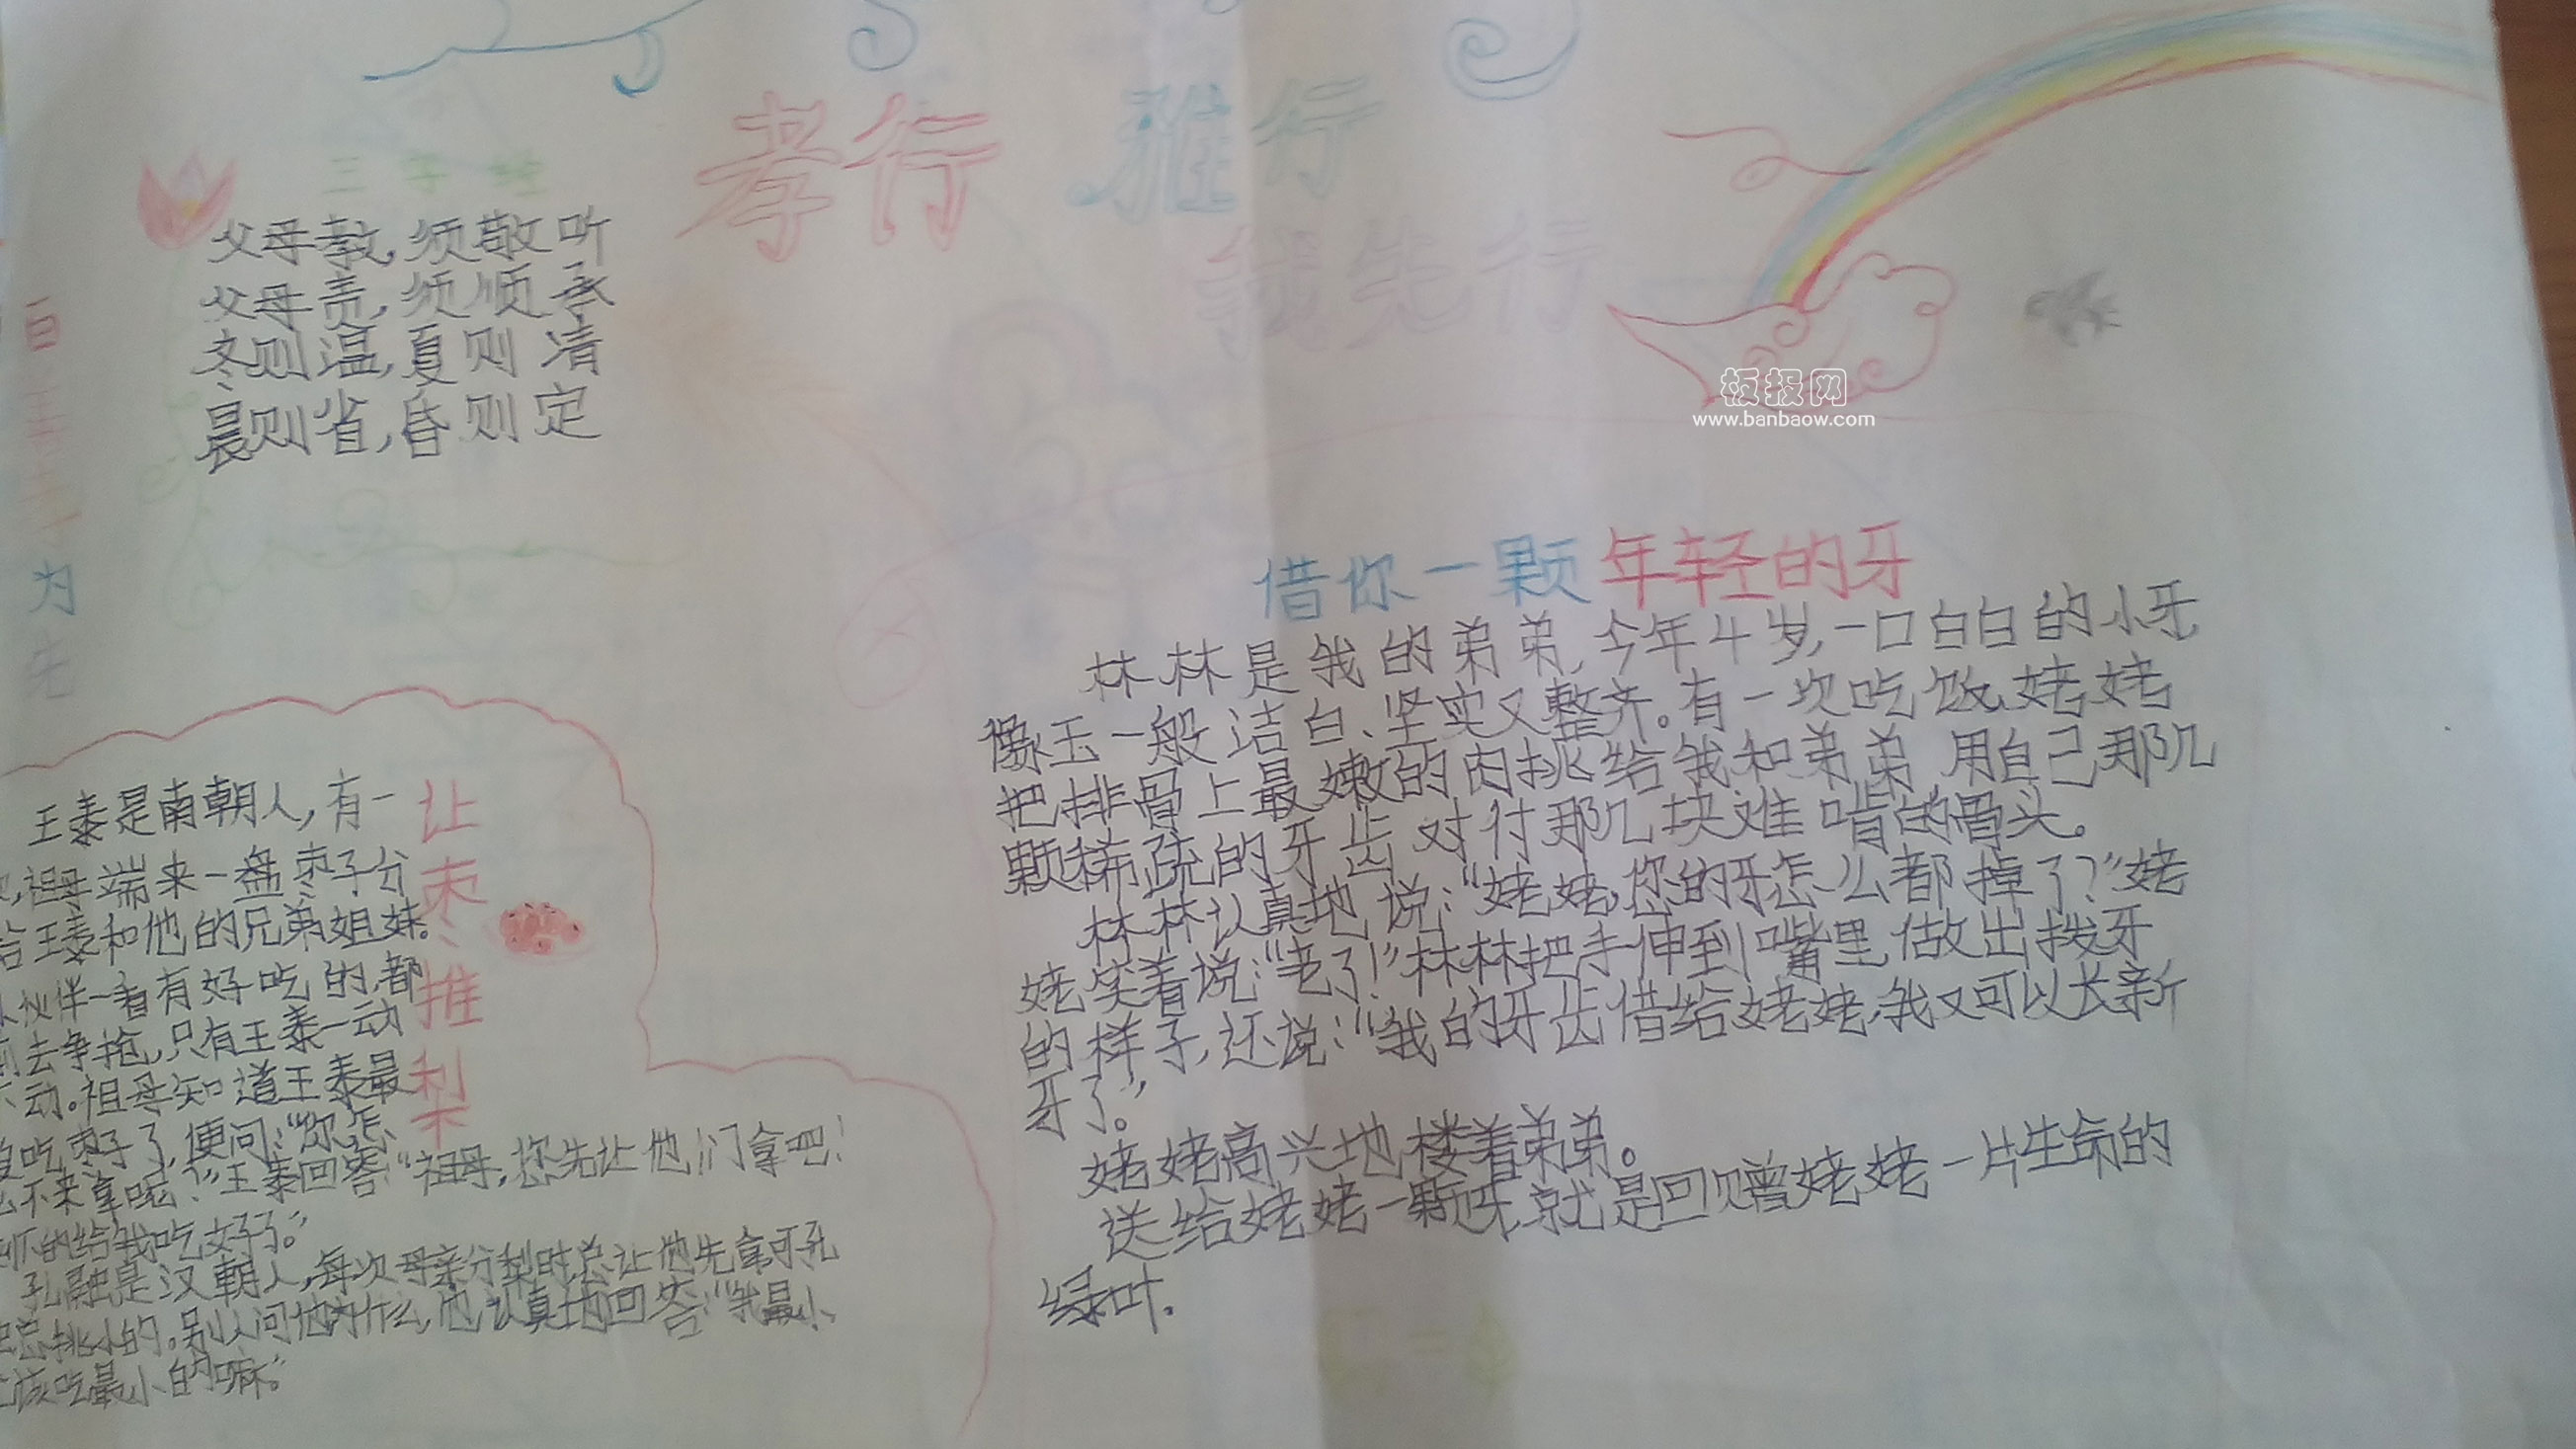 孝行 雅行
我先行
三字经
父母教,须敬听
父母责,须顺承
冬则温,夏则凊
晨则省,昏则定
百
善
为
先
板报网
www.banbaow.com
借你一颗年轻的牙
林林是我的弟弟,今年4岁,一口白白的小牙
像玉一般洁白、坚实又整齐。有一次吃饭,姥姥
把排骨上最嫩的肉挑给我和弟弟,用自己那几
颗稀疏的牙齿对付那几块难啃的骨头。
林林认真地说:“姥姥,您的牙怎么都掉了?”姥
姥笑着说:“老了!”林林把手伸到嘴里,做出拨牙
的样子,还说:“我的牙齿借给姥姥,我又可以长新
牙了。”
姥姥高兴地楼着弟弟。
送给姥姥一颗牙,就是回赠姥姥一片生命的
绿叶.
让枣、推梨
王泰是南朝人,有一
,祖母端来一盘枣子分
给王泰和他的兄弟姐妹。
伙伴一看有好吃的,都
去争抢,只有王泰一动
动。祖母知道王泰最
吃枣子了,便问:“你怎
么不来拿呢?”王泰回答:“祖母,您先让他们拿吧!
的给我吃好了。”
孔融是汉朝人,每次母亲分梨时,总让他先拿,可孔
总挑小的。别人问他为什么,他认真地回答:“我最小,
该吃最小的嘛。”